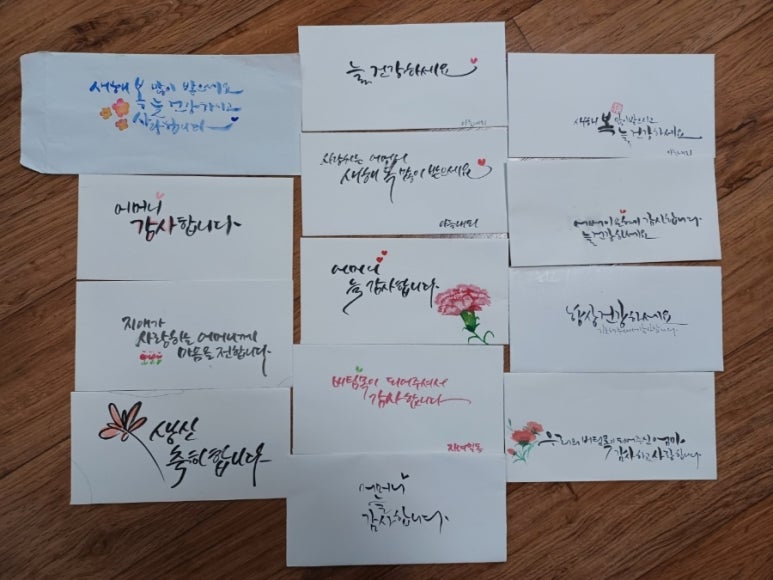 새해 복 많이 받으세요
늘 건강하시고
사랑합니다
어머니
감사합니다.
지애가
사랑하는 어머니께
마음을 전합니다.
생신
축하합니다
늘 건강하세요
사랑하는 어머님
새해 복 많이 받으세요
어머니
늘 감사합니다.
버팀목이 되어주셔서
감사합니다
어머니
늘
감사합니다.
새해 복 많이 받으시고
늘 건강하세요
감사합니다.
늘 건강하세요
항상 건강하세요
우리의 버팀목이 되어주신 엄마.
감사하고 사랑합니다